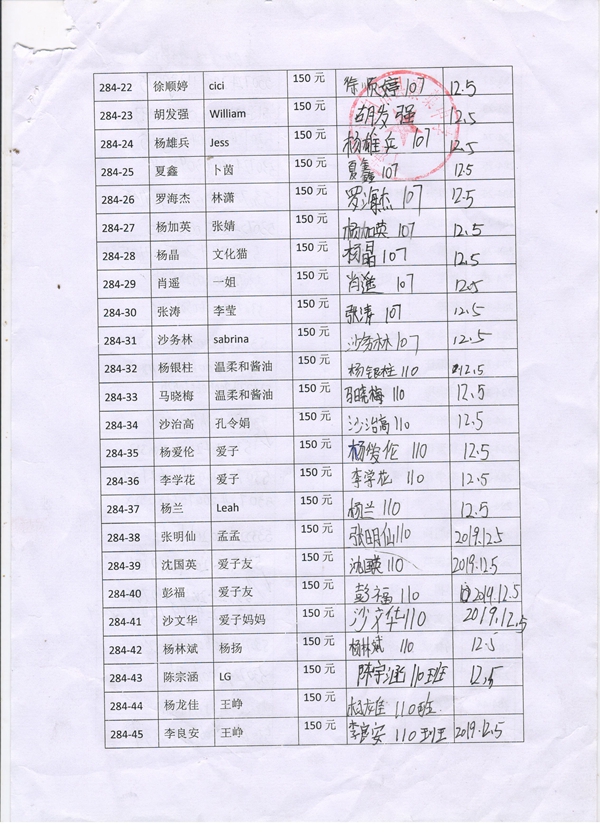 284-22 徐顺婷 cici 150 元 徐顺婷 107 12.5
284-23 胡发强 William 150 元 胡发强 12.5
284-24 杨雄兵 Jess 150 元 杨雄兵 107 12.5
284-25 夏鑫 卜茵 150 元 夏鑫 107 12.5
284-26 罗海杰 林潇 150 元 罗海杰 107 12.5
284-27 杨加英 张婧 150 元 杨加英 107 12.5
284-28 杨晶 文化猫 150 元 杨晶 107 12.5
284-29 肖遥 一姐 150 元 肖遥 107 12.5
284-30 张涛 李莹 150 元 张涛 107 12.5
284-31 沙务林 sabrina 150 元 沙务林 107 12.5
284-32 杨银柱 温柔和酱油 150 元 杨银柱 110 12.5
284-33 马晓梅 温柔和酱油 150 元 马晓梅 110 12.5
284-34 沙治高 孔令娟 150 元 沙治高 110 12.5
284-35 杨爱伦 爱子 150 元 杨爱伦 110 12.5
284-36 李学花 爱子 150 元 李学花 110 12.5
284-37 杨兰 Leah 150 元 杨兰 110 12.5
284-38 张明仙 孟孟 150 元 张明仙 110 2019.12.5
284-39 沈国英 爱子友 150 元 沈国英 110 2019.12.5
284-40 彭福 爱子友 150 元 彭福 110 2019.12.5
284-41 沙文华 爱子妈妈 150 元 沙文华 110 2019.12.5
284-42 杨林斌 杨扬 150 元 杨林斌 110 12.5
284-43 陈宗涵 LG 150 元 陈宗涵 110班 12.5
284-44 杨龙佳 王峥 150 元 110班
284-45 李良安 王峥 150 元 李良安 110班 2019.12.5